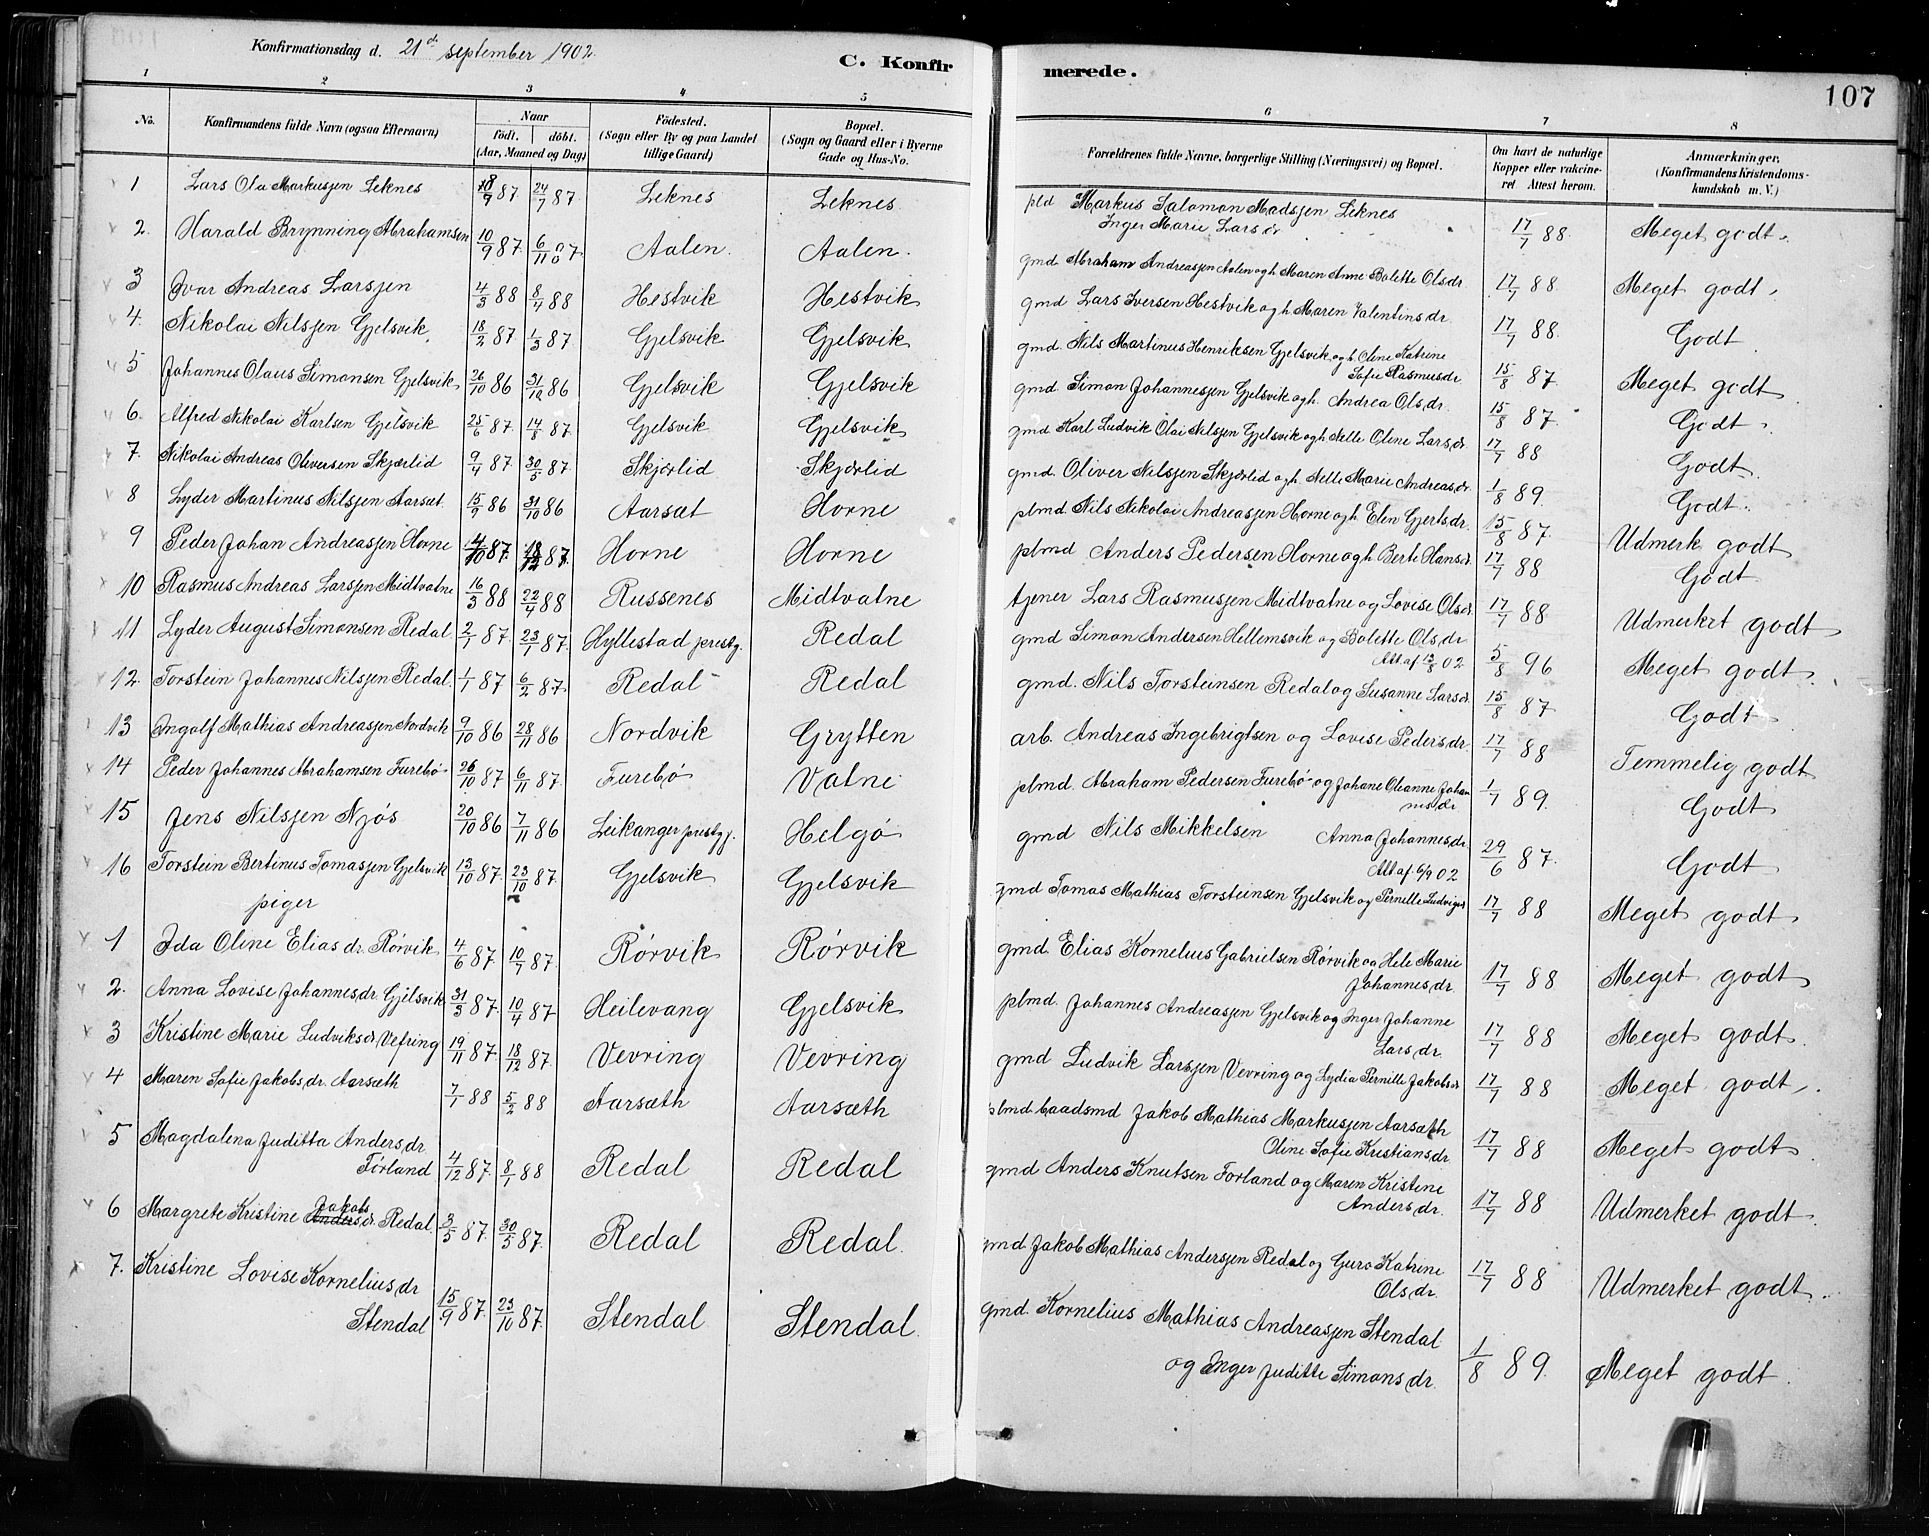 Konfirmationsdag d. 21de september 1902.
C. Konfirmerede.
107
1 2 3 4 5 6 7 8
No. Konfirmandens fulde Navn (ogsaa Efternavn) Naar født. døbt. (Aar, Maaned og Dag) Fødested. (Sogn eller By og paa Landet tillige Gaard) Bopæl. (Sogn og Gaard eller i Byerne Gade og Hus-No. Forældrenes fulde Navne, borgerlige Stilling (Næringsvei) og Bopæl. Om havt de naturlige Kopper eller vakcineret Attest herom. Anmærkninger. (Konfirmandens Kristendomskundskab m. V.)
1 Lars Ola Markusjen Leknes 18/9 87 24/7 87 Leknes Leknes pld Markus Salomon Madsjen Leknes
Inger Marie Larsdr 17/7 88. Meget godt.
2. Harald Brynning Abrahamsen 10/9 87 6/11 87 Aalen. Aalen. gmd. Abraham Andreasjen Aalen og h. Maren Anne Bolette Olsdr. 17/7 88. Meget godt.
3 Ivar Andreas Larsjen 4/3 88 8/4 88 Hestvik Hestvik gmd Lars Iversen Hestvik og h. Maren Valentins dr. 17/7 88. Godt
4. Nikolai Nilsjen Gjelsvik. 18/2 87 1/3 87 Gjelsvik Gjelsvik gmd. Nils Martinus Henriksen Gjelsvik og h. Oline Katrine
Sofie Rasmusdr 15/8 87 Meget godt
5 Johannes Olaus Simonsen Gjelsvik 26/10 86 31/10 86 Gjelsvik Gjelsvik gmd Simon Johannesjen Gjelsvik og h. Andrea Ols.dr. 15/8 87 Godt.
6. Alfred Nikolai Karlsen Gjelsvik 25/6 87 14/8 87 Gjelsvik Gjelsvik gmd Karl Ludvik Olai Nilsjen Gjelsvik og h Nelle Oline Larsdr 17/7 88 Godt
7. Nikolai Andreas Oliversen Skjærlid 9/4 87 30/5 87 Skjærlid Skjærlid gmd. Oliver Nilsjen Skjærlid og h. Nelle Marie Andreas.dr. 1/8 89. Godt.
8 Lyder Martinus Nilsjen Aarsæt 15/9 86 31/10 86 Aarsæt Horne plmd. Nils Nikolai Andreasjen Horne og h. Elen Gjertsdr. 15/8 87. Udmerk godt
9 Peder Johan Andreasjen Horne 14/10 87 18/12 87 Horne Horne plmd Anders Pedersen Horne og h Berte Hansdr. 17/7 88 Godt
10 Rasmus Andreas Larsjen Midtvatne 16/3 88 22/4 88 Russenes Midtvatne tjener Lars Rasmusjen Midtvatne og Lovise Olsdr 17/7 88 Udmerket godt
11 Lyder August Simonsen Redal 2/1 87 23/1 87 Hyllestad prestg. Redal gmd Simon Andersen Hellemsvik og Bolette Ols.dr
Att af 13/8 02 5/8 96 Meget godt
12 Torstein Johannes Nilsjen Redal. 1/1 87 6/2 87 Redal Redal gmd. Nils Torsteinsen Redal og Susanne Larsdr. 15/8 87 Godt
13 Ingolf Mathias Andreasjen Nordvik 9/10 86 28/11 86 Nordvik Grytten arb. Andreas Ingebrigtsen og Lovise Peders.dr. 17/7 88 Temmelig godt
14 Peder Johannes Abrahamsen Furebø 26/10 87 6/11 87 Furebø Vatne plmd. Abraham Pedersen Furebø og Johane Oleanne Johan
nes.dr 1/7 89. Godt
15 Jens Nilsjen Njøs 20/10 86 7/11 86 Leikanger prestgj. Helgø gmd Nils Mikkelsen Anna Johannes.dr.
Att af 6/9 02 29/6 87. Godt
16 Torstein Bertinus Tomasjen Gjelsvik 13/10 87. 23/10 87 Gjelsvik Gjelsvik gmd Tomas Mathias Torsteinsen Gjelsvik og Pernille Ludvigsd 17/7 88 Meget godt
piger
1 Ida Oline Elias dr. Rørvik 4/6 87 10/7 87. Rørvik Rørvik gmd. Elias Kornelius Gabrielsen Rørvik og Hele Marie
Johannes.dr. 17/7 88 Meget godt
2. Anna Lovise Johannes.dr. Gjelsvik 31/3 87. 10/4 87 Heilevang Gjelsvik plmd. Johannes Andreasjen Gjelsvik og Inger Johanne
Lars dr. 17/7 88 Meget godt.
3 Kristine Marie Ludviksdr Vefring 19/11 87. 18/12 87. Vevring Vevring gmd Ludvik Larsjen Vevring og Lydia Pernille Jakobsdr 17/7 88 Meget godt.
4 Maren Sofie Jakobs.dr. Aarsæth 7/1 88 5/2 88 Aarsæth Aarsæth plmd baadsmd Jakob Mathias Markusjen Aarsæth
Oline Sofie Kristiansdr. 17/7 88 Meget godt
5 Magdalena Juditta Anders.dr
Førland 4/12 87. 8/1 88 Redal Redal gmd Anders Knutsen Forland og Maren Kristine
Anders dr. 17/7 88 Udmerket godt.
6 Margrete Kristine Anders Jakobs dr. Redal. 3/5 87. 30/5 87. Redal Redal. gmd. Jakob Mathias Andersjen Redal og Guro Katrine
Ols dr. 17/7 88 Udmerket godt.
7. Kristine Lovise Kornelius.dr
Stendal 15/9 87. 23/10 87. Stendal Stendal. gmd. Kornelius Mathias Andreasjen Stendal
og Inger Juditte Simons dr. 1/8 89. Meget godt.